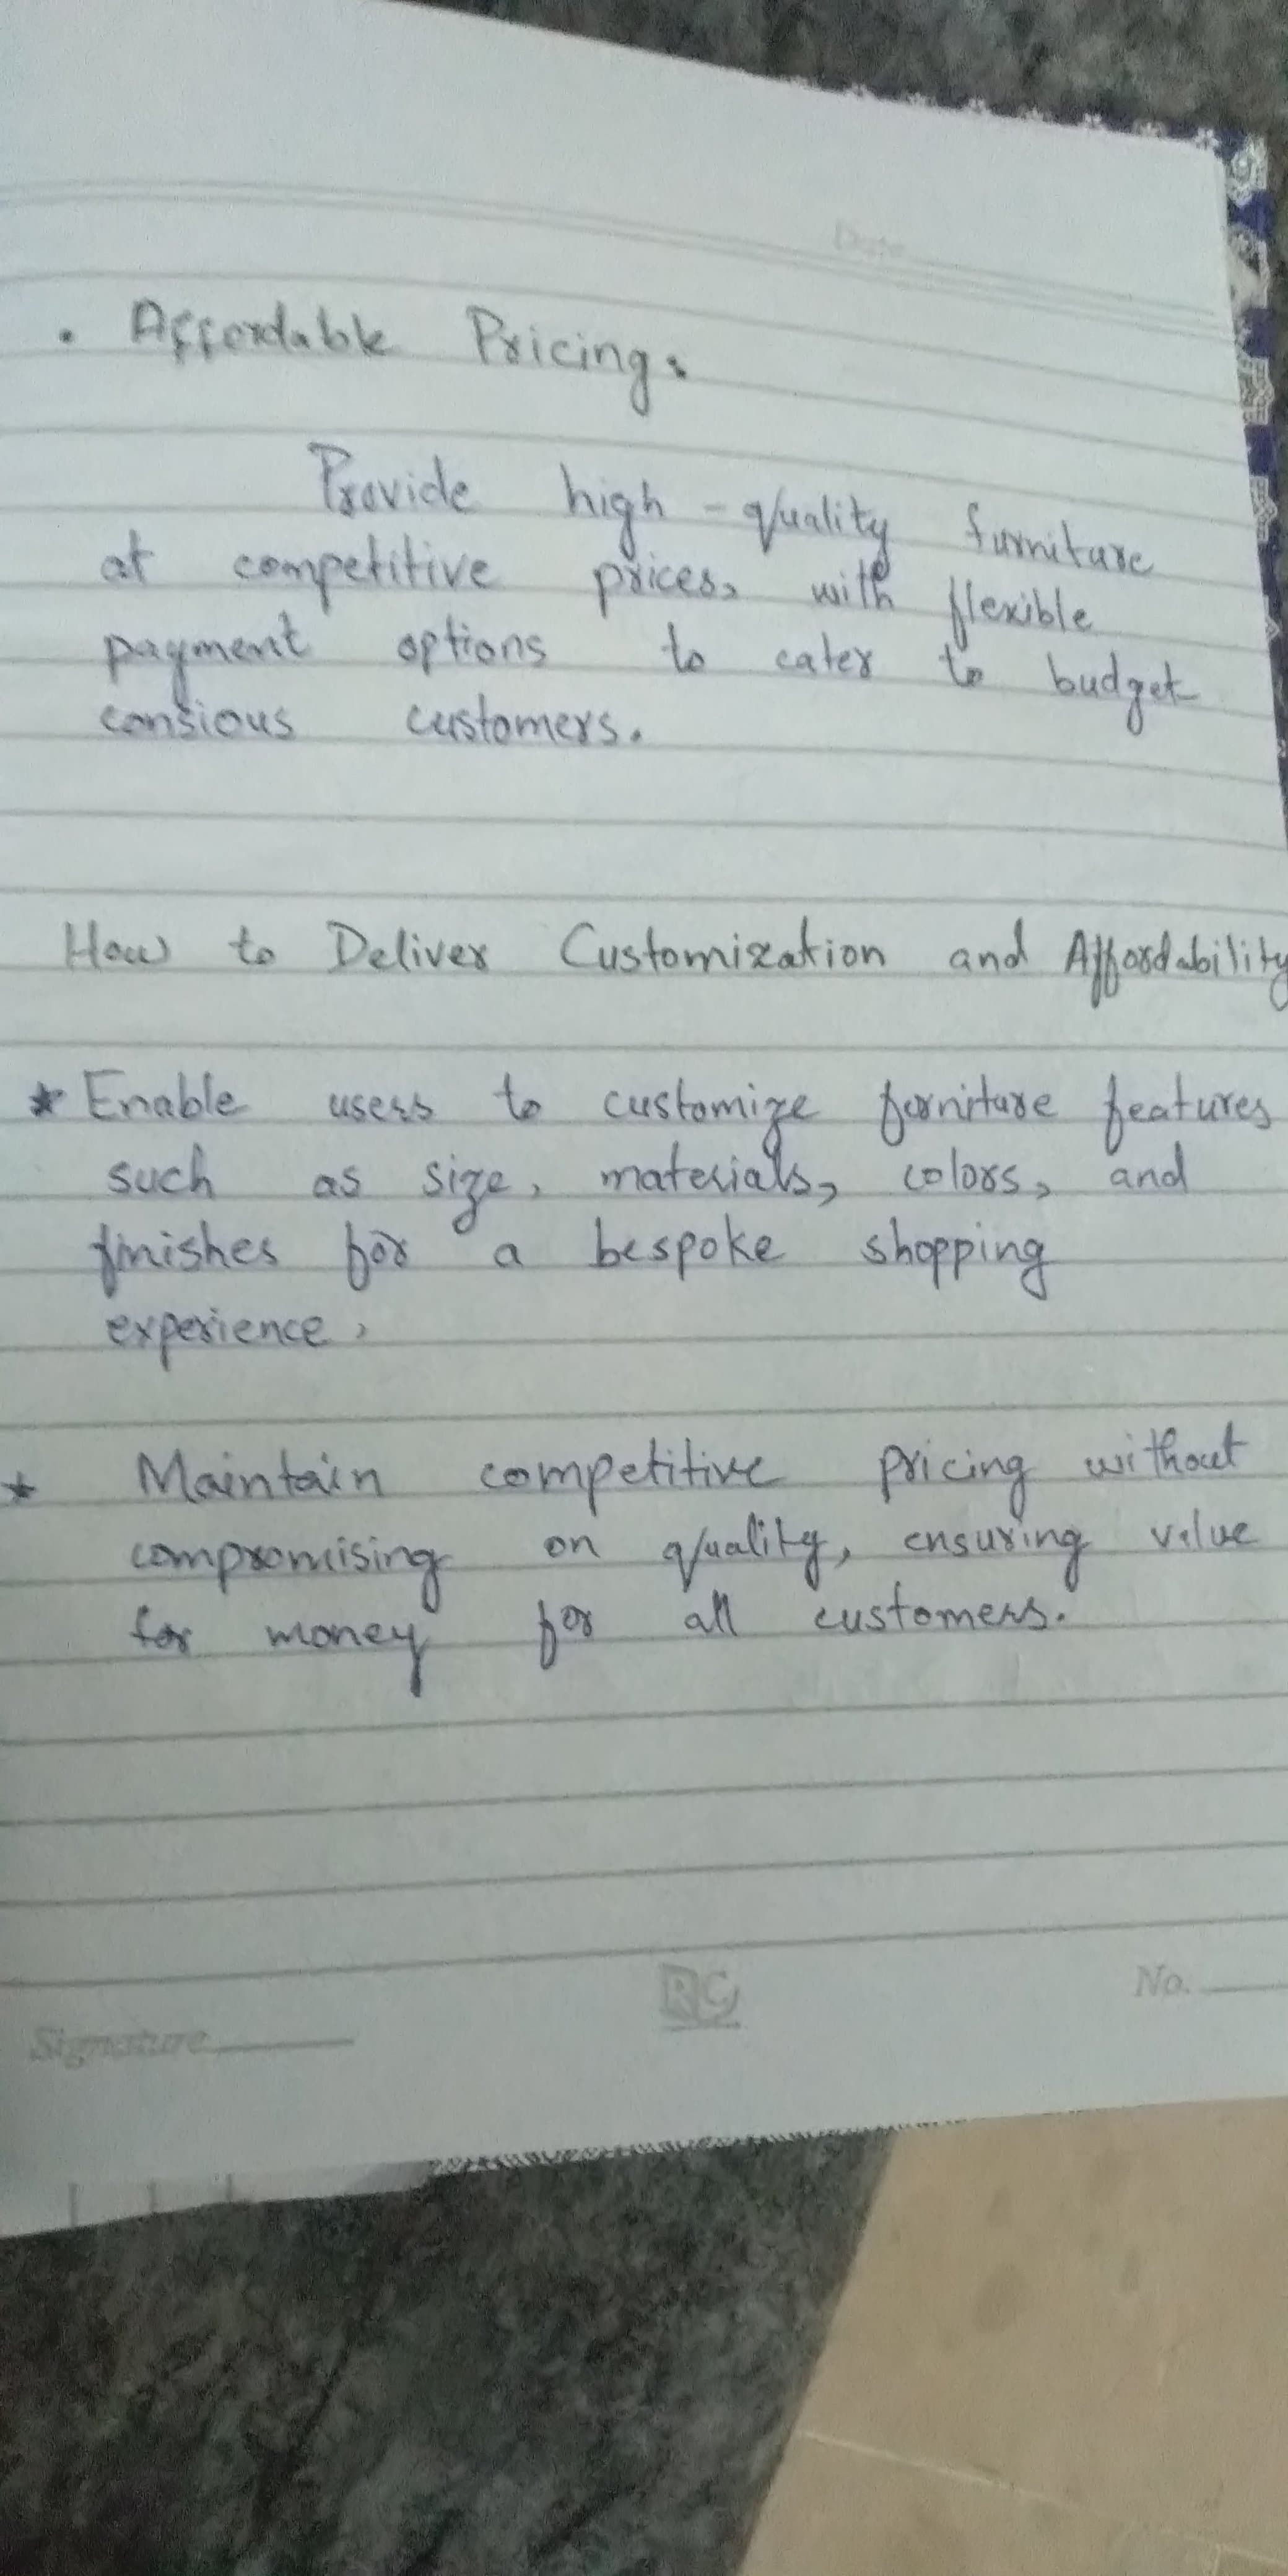 Date
• Affordable Pricing:
Provide high-quality furniture
at competitive prices, with flexible
payment options to cater to budget
consious customers.
How to Deliver Customization and Affordability
* Enable users to customize forniture features
such as size, materials, colors, and
finishes for a bespoke shopping
experience.
* Maintain competitive pricing without
compromising on quality, ensuring value
for money for all customers.
RC
No.
Signature